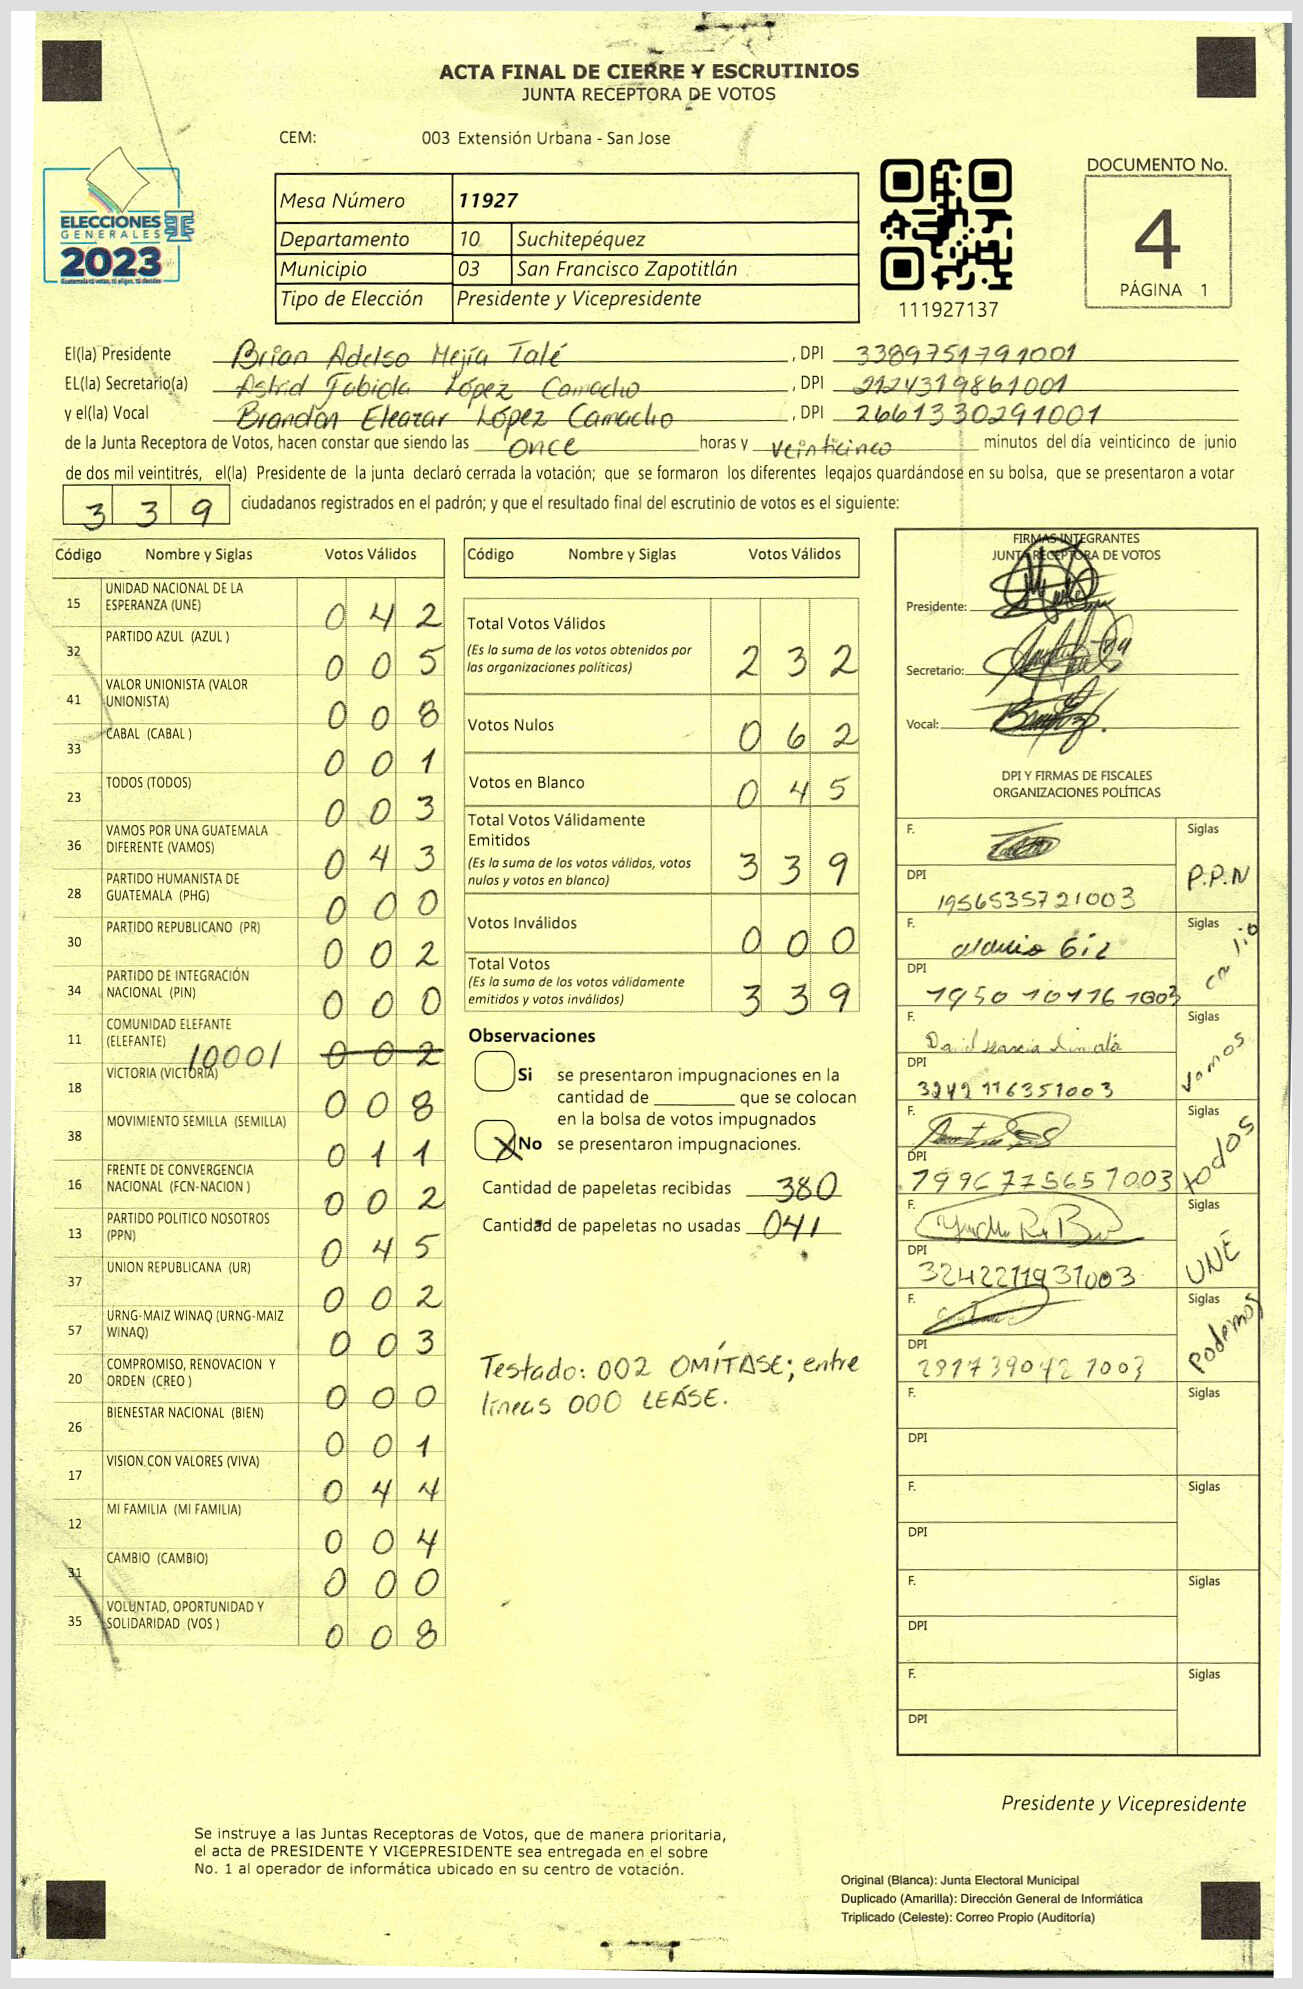 ACTA FINAL DE CIERRE Y ESCRUTINIOS
JUNTA RECEPTORA DE VOTOS
CEM: 003 Extensión Urbana - San Jose
ELECCIONES
GENERALES
2023
Mesa Número 11927
Departamento 10 Suchitepéquez
Municipio 03 San Francisco Zapotitlán
Tipo de Elección Presidente y Vicepresidente
111927137
DOCUMENTO No.
4
PÁGINA 1
El(la) Presidente Brian Adelso Mejía Talé, DPI 3389751791001
EL(la) Secretario(a) Astrid Fabiola López Camacho, DPI 2124319861001
y el(la) Vocal Brandón Eleazar López Camacho, DPI 2661330291001
de la Junta Receptora de Votos, hacen constar que siendo las once horas y veinticinco minutos del día veinticinco de junio
de dos mil veintitrés, el(la) Presidente de la junta declaró cerrada la votación; que se formaron los diferentes legajos quardándose en su bolsa, que se presentaron a votar
3 3 9 ciudadanos registrados en el padrón; y que el resultado final del escrutinio de votos es el siguiente:
Código Nombre y Siglas Votos Válidos
15 UNIDAD NACIONAL DE LA ESPERANZA (UNE) 0 4 2
32 PARTIDO AZUL (AZUL ) 0 0 5
41 VALOR UNIONISTA (VALOR UNIONISTA) 0 0 8
33 CABAL (CABAL ) 0 0 1
23 TODOS (TODOS) 0 0 3
36 VAMOS POR UNA GUATEMALA DIFERENTE (VAMOS) 0 4 3
28 PARTIDO HUMANISTA DE GUATEMALA (PHG) 0 0 0
30 PARTIDO REPUBLICANO (PR) 0 0 2
34 PARTIDO DE INTEGRACIÓN NACIONAL (PIN) 0 0 0
11 COMUNIDAD ELEFANTE (ELEFANTE) 10001 0 0 2
18 VICTORIA (VICTORIA) 0 0 8
38 MOVIMIENTO SEMILLA (SEMILLA) 0 1 1
16 FRENTE DE CONVERGENCIA NACIONAL (FCN-NACION ) 0 0 2
13 PARTIDO POLITICO NOSOTROS (PPN) 0 4 5
37 UNION REPUBLICANA (UR) 0 0 2
57 URNG-MAIZ WINAQ (URNG-MAIZ WINAQ) 0 0 3
20 COMPROMISO, RENOVACION Y ORDEN (CREO ) 0 0 0
26 BIENESTAR NACIONAL (BIEN) 0 0 1
17 VISION CON VALORES (VIVA) 0 4 4
12 MI FAMILIA (MI FAMILIA) 0 0 4
31 CAMBIO (CAMBIO) 0 0 0
35 VOLUNTAD, OPORTUNIDAD Y SOLIDARIDAD (VOS ) 0 0 8
Código Nombre y Siglas Votos Válidos
Total Votos Válidos 2 3 2
(Es la suma de los votos obtenidos por
las organizaciones políticas)
Votos Nulos 0 6 2
Votos en Blanco 0 4 5
Total Votos Válidamente
Emitidos 3 3 9
(Es la suma de los votos válidos, votos
nulos y votos en blanco)
Votos Inválidos 0 0 0
Total Votos 3 3 9
(Es la suma de los votos válidamente
emitidos y votos inválidos)
Observaciones
Si se presentaron impugnaciones en la
cantidad de ________ que se colocan
en la bolsa de votos impugnados
X No se presentaron impugnaciones.
Cantidad de papeletas recibidas 380
Cantidad de papeletas no usadas 041
Testado: 002 OMÍTASE; entre
líneas 000 LEASE.
FIRMAS INTEGRANTES
JUNTA RECEPTORA DE VOTOS
Presidente:
Secretario:
Vocal:
DPI Y FIRMAS DE FISCALES
ORGANIZACIONES POLÍTICAS
F. Siglas P.P.N
DPI 1956535721003
F. Siglas
DPI 1950101161003
F. David Siglas Vamos
DPI 3242116351003
F. Siglas todos
DPI 1996775651003
F. Siglas UNE
DPI 3242211931003
F. Siglas Podemos
DPI 2817390421003
F. Siglas
DPI
F. Siglas
DPI
F. Siglas
DPI
F. Siglas
DPI
Presidente y Vicepresidente
Se instruye a las Juntas Receptoras de Votos, que de manera prioritaria,
el acta de PRESIDENTE Y VICEPRESIDENTE sea entregada en el sobre
No. 1 al operador de informática ubicado en su centro de votación.
Original (Blanca): Junta Electoral Municipal
Duplicado (Amarilla): Dirección General de Informática
Triplicado (Celeste): Correo Propio (Auditoría)